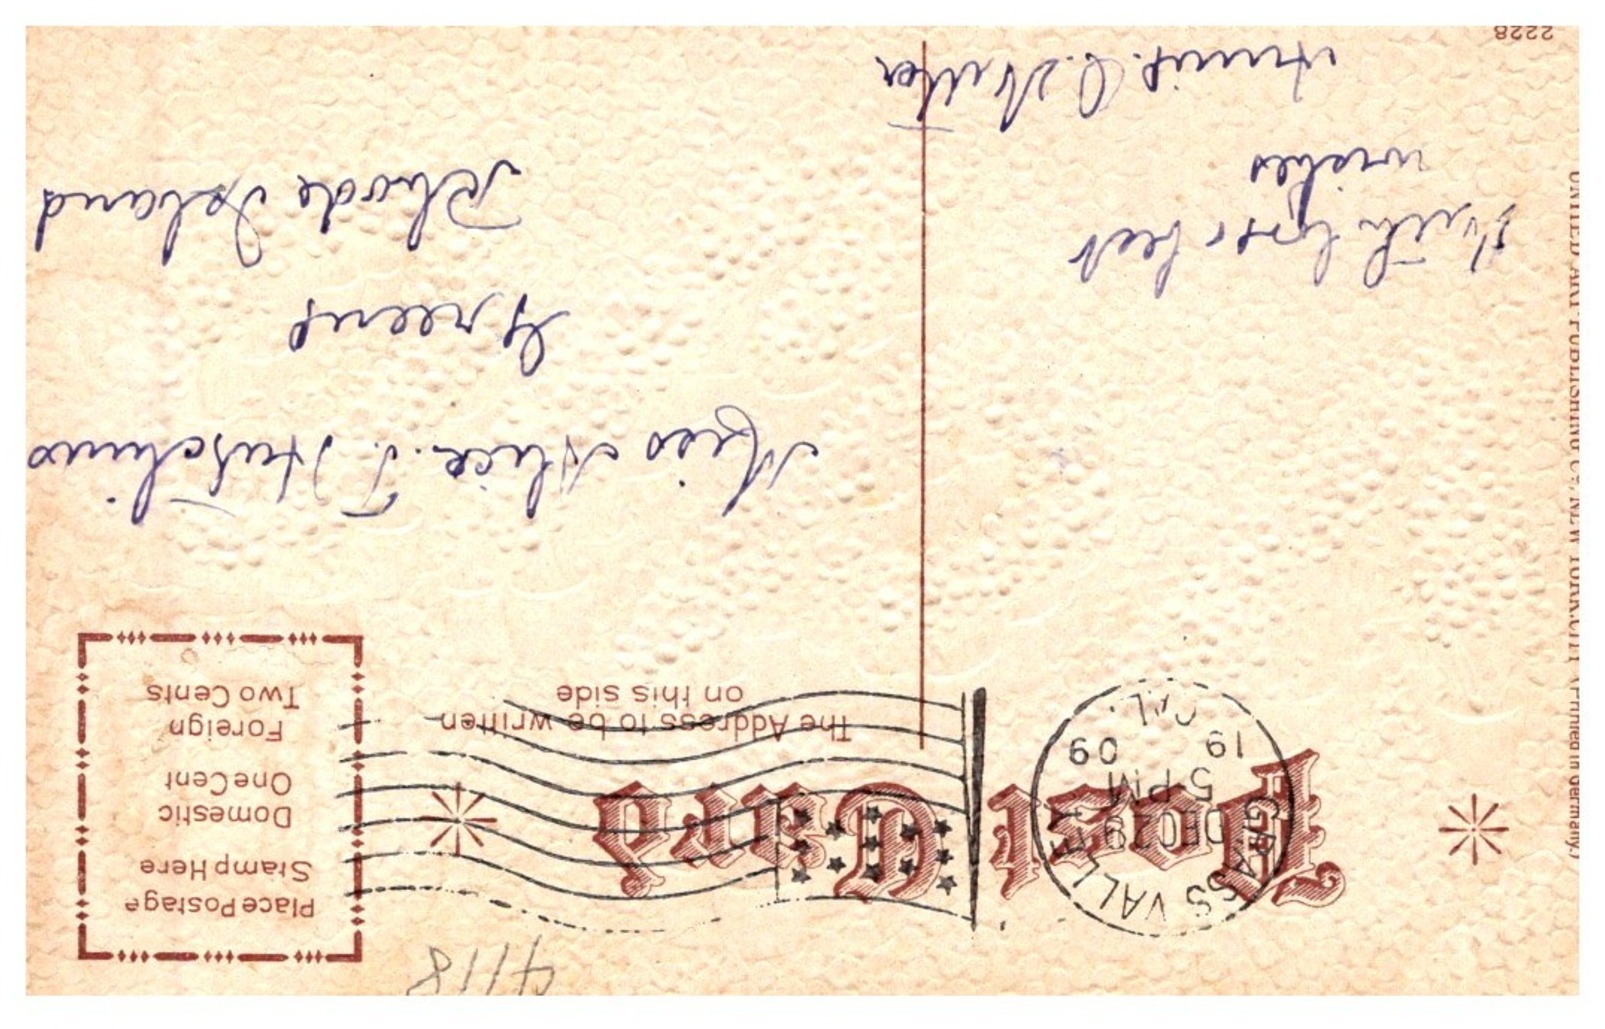 UNITED ART PUBLISHING Co., NEW YORK CITY (Printed in Germany.)
2228
Post Card
GRASS VALLEY
DEC 29
5 PM
19 09
CAL.
The Address to be written
on this side
Place Postage
Stamp Here
Domestic
One Cent
Foreign
Two Cents
With love & best
wishes
Annie
Miss Alice. T. Hutchins
Greene
Rhode Island
4/18